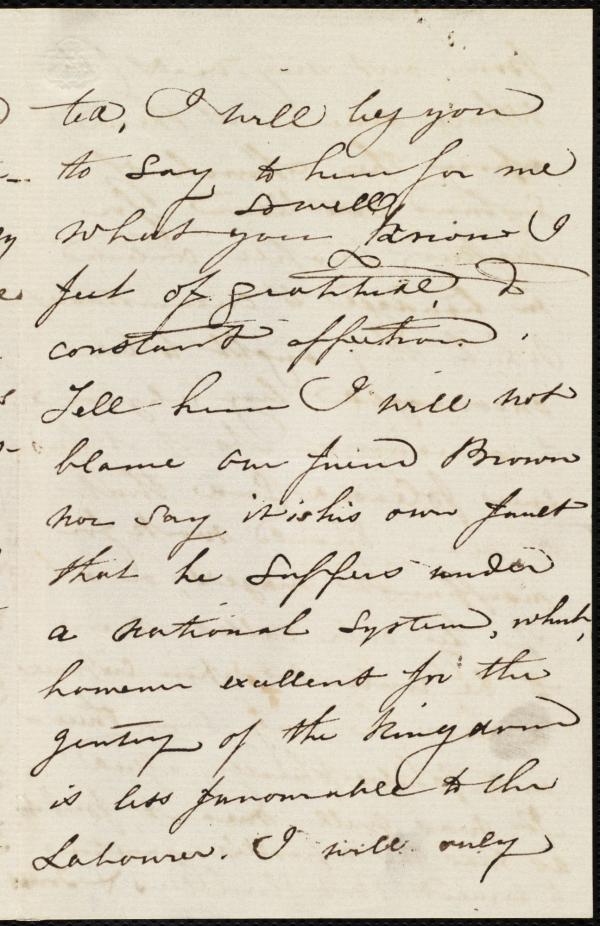 ted, I will beg you
to say to him for me
so well
what you know I
feel of gratitude &
constant affection.
Tell him I will not
blame our friend Brown
nor say it is his own fault
that he suffers under
a national system, which,
however excellent for the
gentry of the Kingdom
is less favourable to the
Labourer. I will only